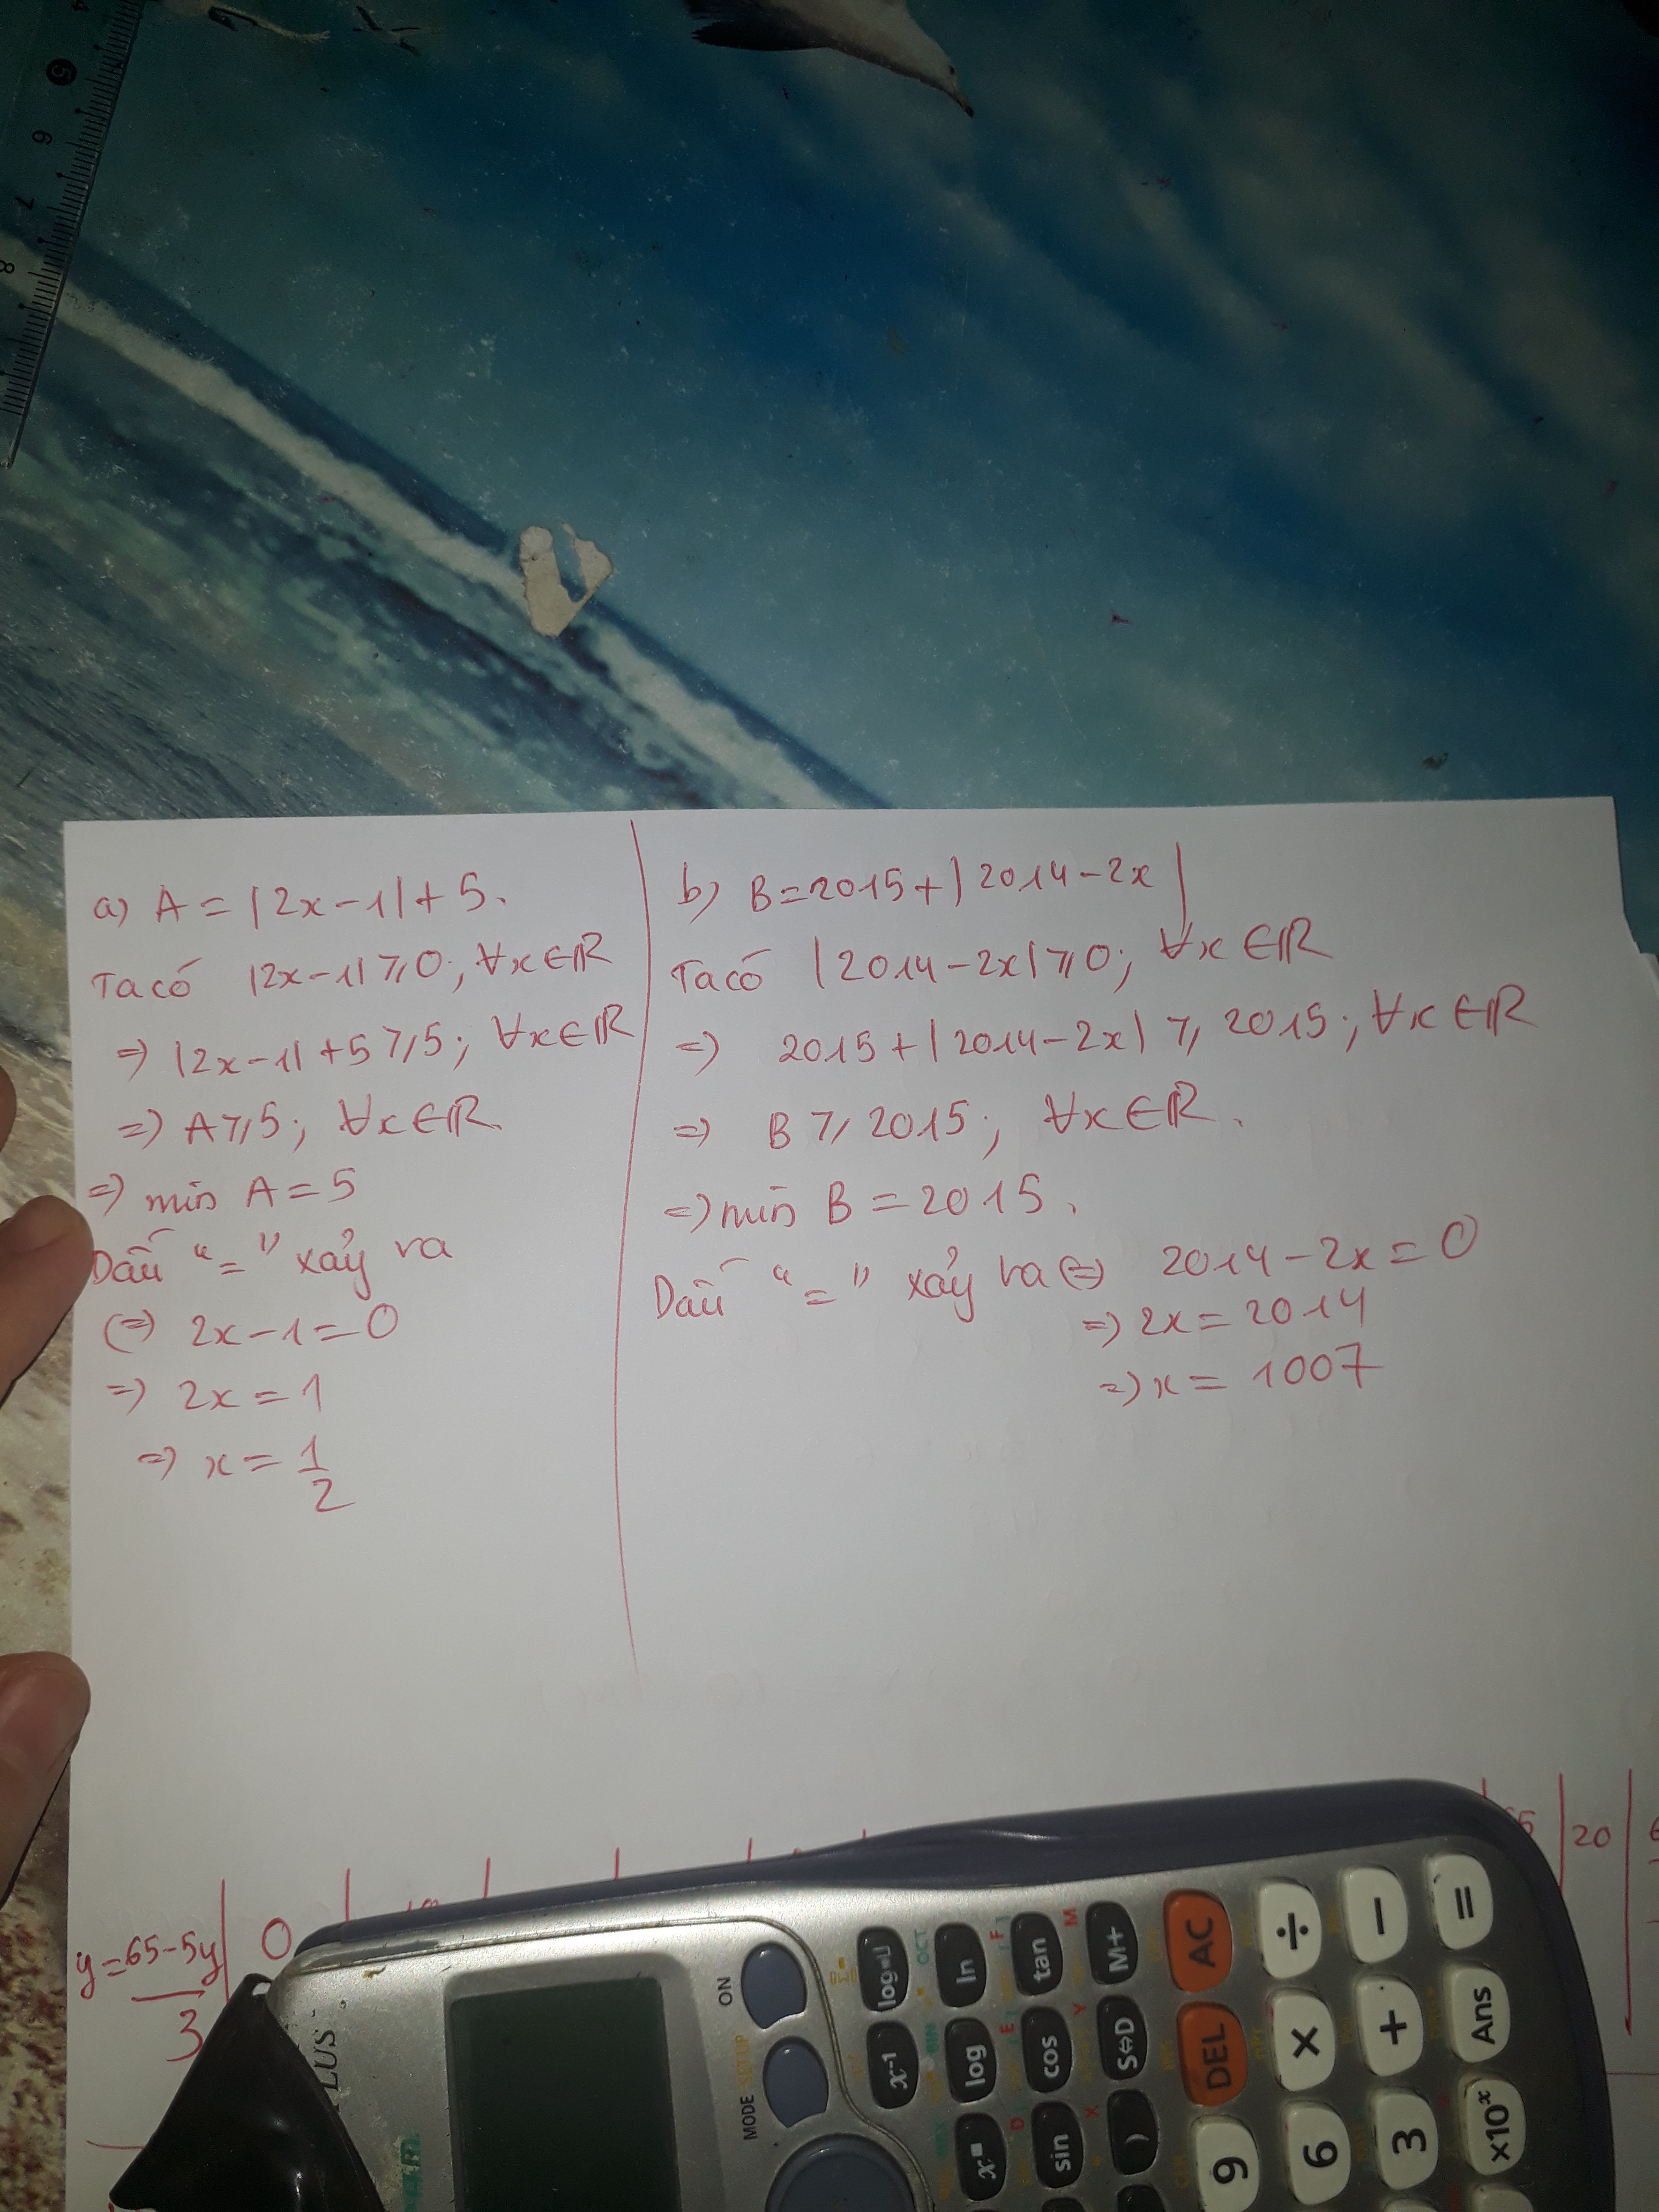 a) A = |2x-1| + 5.
Ta có |2x-1| ⩾ 0; ∀x∈ℝ
=> |2x-1| + 5 ⩾ 5; ∀x∈ℝ
=> A ⩾ 5; ∀x∈ℝ.
=> min A = 5
Dấu "=" xảy ra
(=) 2x-1=0
=> 2x = 1
=> x = 1/2
b) B = 2015 + |2014-2x|
Ta có |2014-2x| ⩾ 0; ∀x∈ℝ
=> 2015 + |2014-2x| ⩾ 2015; ∀x∈ℝ
=> B ⩾ 2015; ∀x∈ℝ.
=> min B = 2015.
Dấu "=" xảy ra (=) 2014-2x=0
=> 2x = 2014
=> x = 1007
y = 65-5y/3 0
20
5
6
7
8
PLUS
ON
MODE SETUP
x⁻¹ log ln
OCT
sin cos tan
D E F
) S⇔D M+
X Y M
9 DEL AC
6 × ÷
3 + −
×10ˣ Ans =